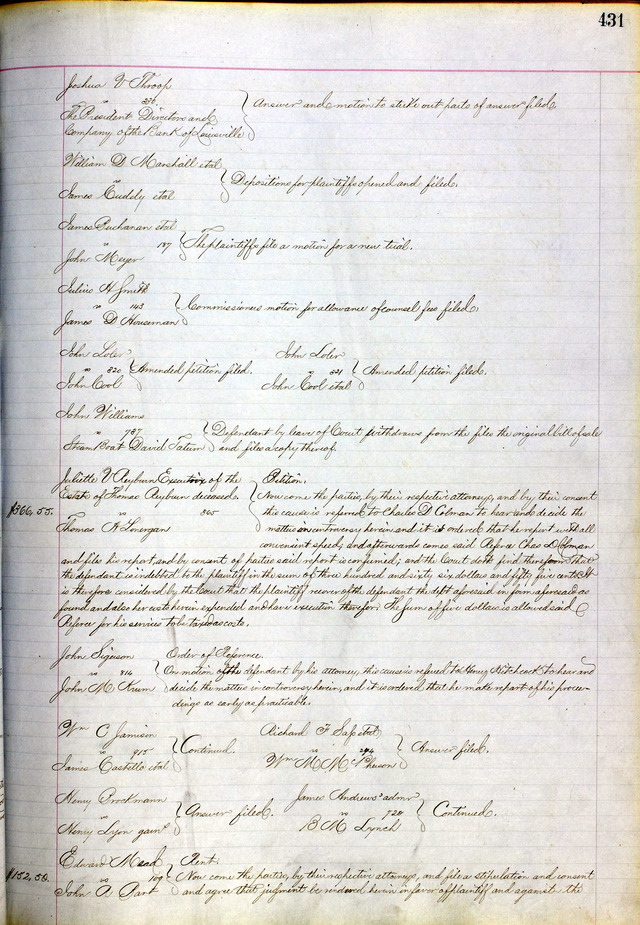 431
Joshua V Throop
vs 336
The President Directors and
Company of the Bank of Louisville
Answer and motion to strike out parts of answer filed.
William D Marshall etal
vs
James Cuddy etal
Depositions for plaintiffs opened and filed.
James Buchanan etal
vs 137
John Meyer
The plaintiffs file a motion for a new trial.
Julius H Smith
vs 143
James D Houseman
Commissioners motion for allowance of counsel fees filed.
John Loler
vs 320
John Cool
Amended petition filed.
John Loler
vs 321
John Cool etal
Amended petition filed.
John Williams
vs 787
Steam Boat David Tatum
Defendant by leave of Court withdraws from the files the original bill of sale
and files a copy thereof.
Juliette V Reyburn Executrix of the
Estate of Thomas Reyburn deceased.
vs 365
Thomas H Lonergan
$366,55.
Petition.
Now come the parties, by their respective attorneys, and by their consent
this cause is referred to Charles D Colman to hear and decide the
matters in controversy herein and it is ordered that he report with all
convenient speed; and afterwards comes said Referee Chas D Colman
and files his report, and by consent of parties said report is confirmed; and the Court doth find therefrom that
the defendant is indebted to the plaintiff in the sum of three hundred and sixty six dollars and fifty five cents. It
is therefore considered by the Court that the plaintiff recover of the defendant the debt aforesaid in form aforesaid as
found and also her costs herein expended and have execution therefor. The sum of five dollars is allowed said
Referee for his services to be taxed as costs.
John Siguson
vs 814
John M Krum
Order of Reference.
On motion of the defendant by his attorney, this cause is referred to Henry Hitchcock to hear and
decide the matters in controversy herein, and it is ordered that he make report of his procee-
dings as early as practicable.
Wm C Jamison
vs 915
James Castello etal
Continued.
Richard F Sass etal
vs 294
Wm M McPheeson
Answer filed.
Henry Brockmann
vs
Henry Lyon garn
Answer filed.
James Andrews' admr
vs 720
B M Lynch
Continued.
Edward Mead
vs 109
John A Park
$152,50.
Rent
Now come the parties, by their respective attorneys, and file a stipulation and consent
and agree that judgment be rendered herein in favor of plaintiff and against the